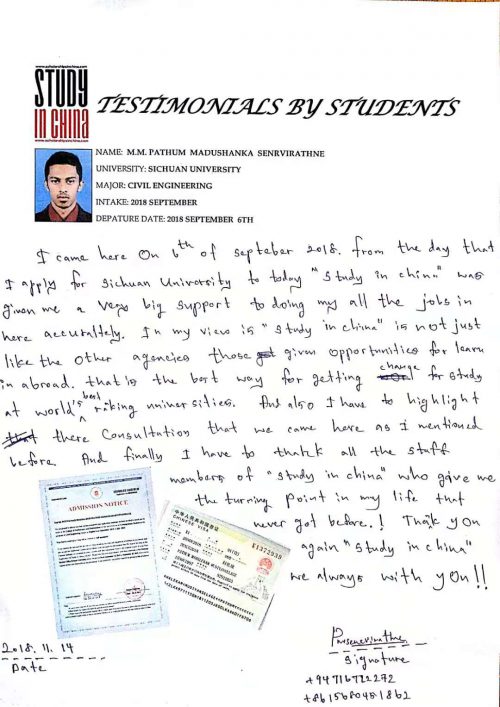 www.scholarshipsinchina.com
STUDY
IN CHINA
www.scholarshipsinchina.com
TESTIMONIALS BY STUDENTS
NAME: M.M. PATHUM MADUSHANKA SENRVIRATHNE
UNIVERSITY: SICHUAN UNIVERSITY
MAJOR: CIVIL ENGINEERING
INTAKE: 2018 SEPTEMBER
DEPATURE DATE: 2018 SEPTEMBER 6TH
I came here on 6th of septeber 2018. from the day that
I apply for sichuan University to today "study in china" was
given me a very big support to doing my all the jobs in
here accuraltely. In my view is "study in china" is not just
like the other agencies those given opportunities for learn
in abroad. that is the best way for getting change for study
at world's best raking universities. And also I have to highlight
there Consultation that we came here as I mentioned
before. And finally I have to thank all the staff
members of "study in china" who give me
the turning point in my life that
never got before.! Thank you
again "study in china"
we always with you!!
ADMISSION NOTICE
中华人民共和国签证
CHINESE VISA
2018. 11. 14
Date
signature
+94716722272
+8615680451862